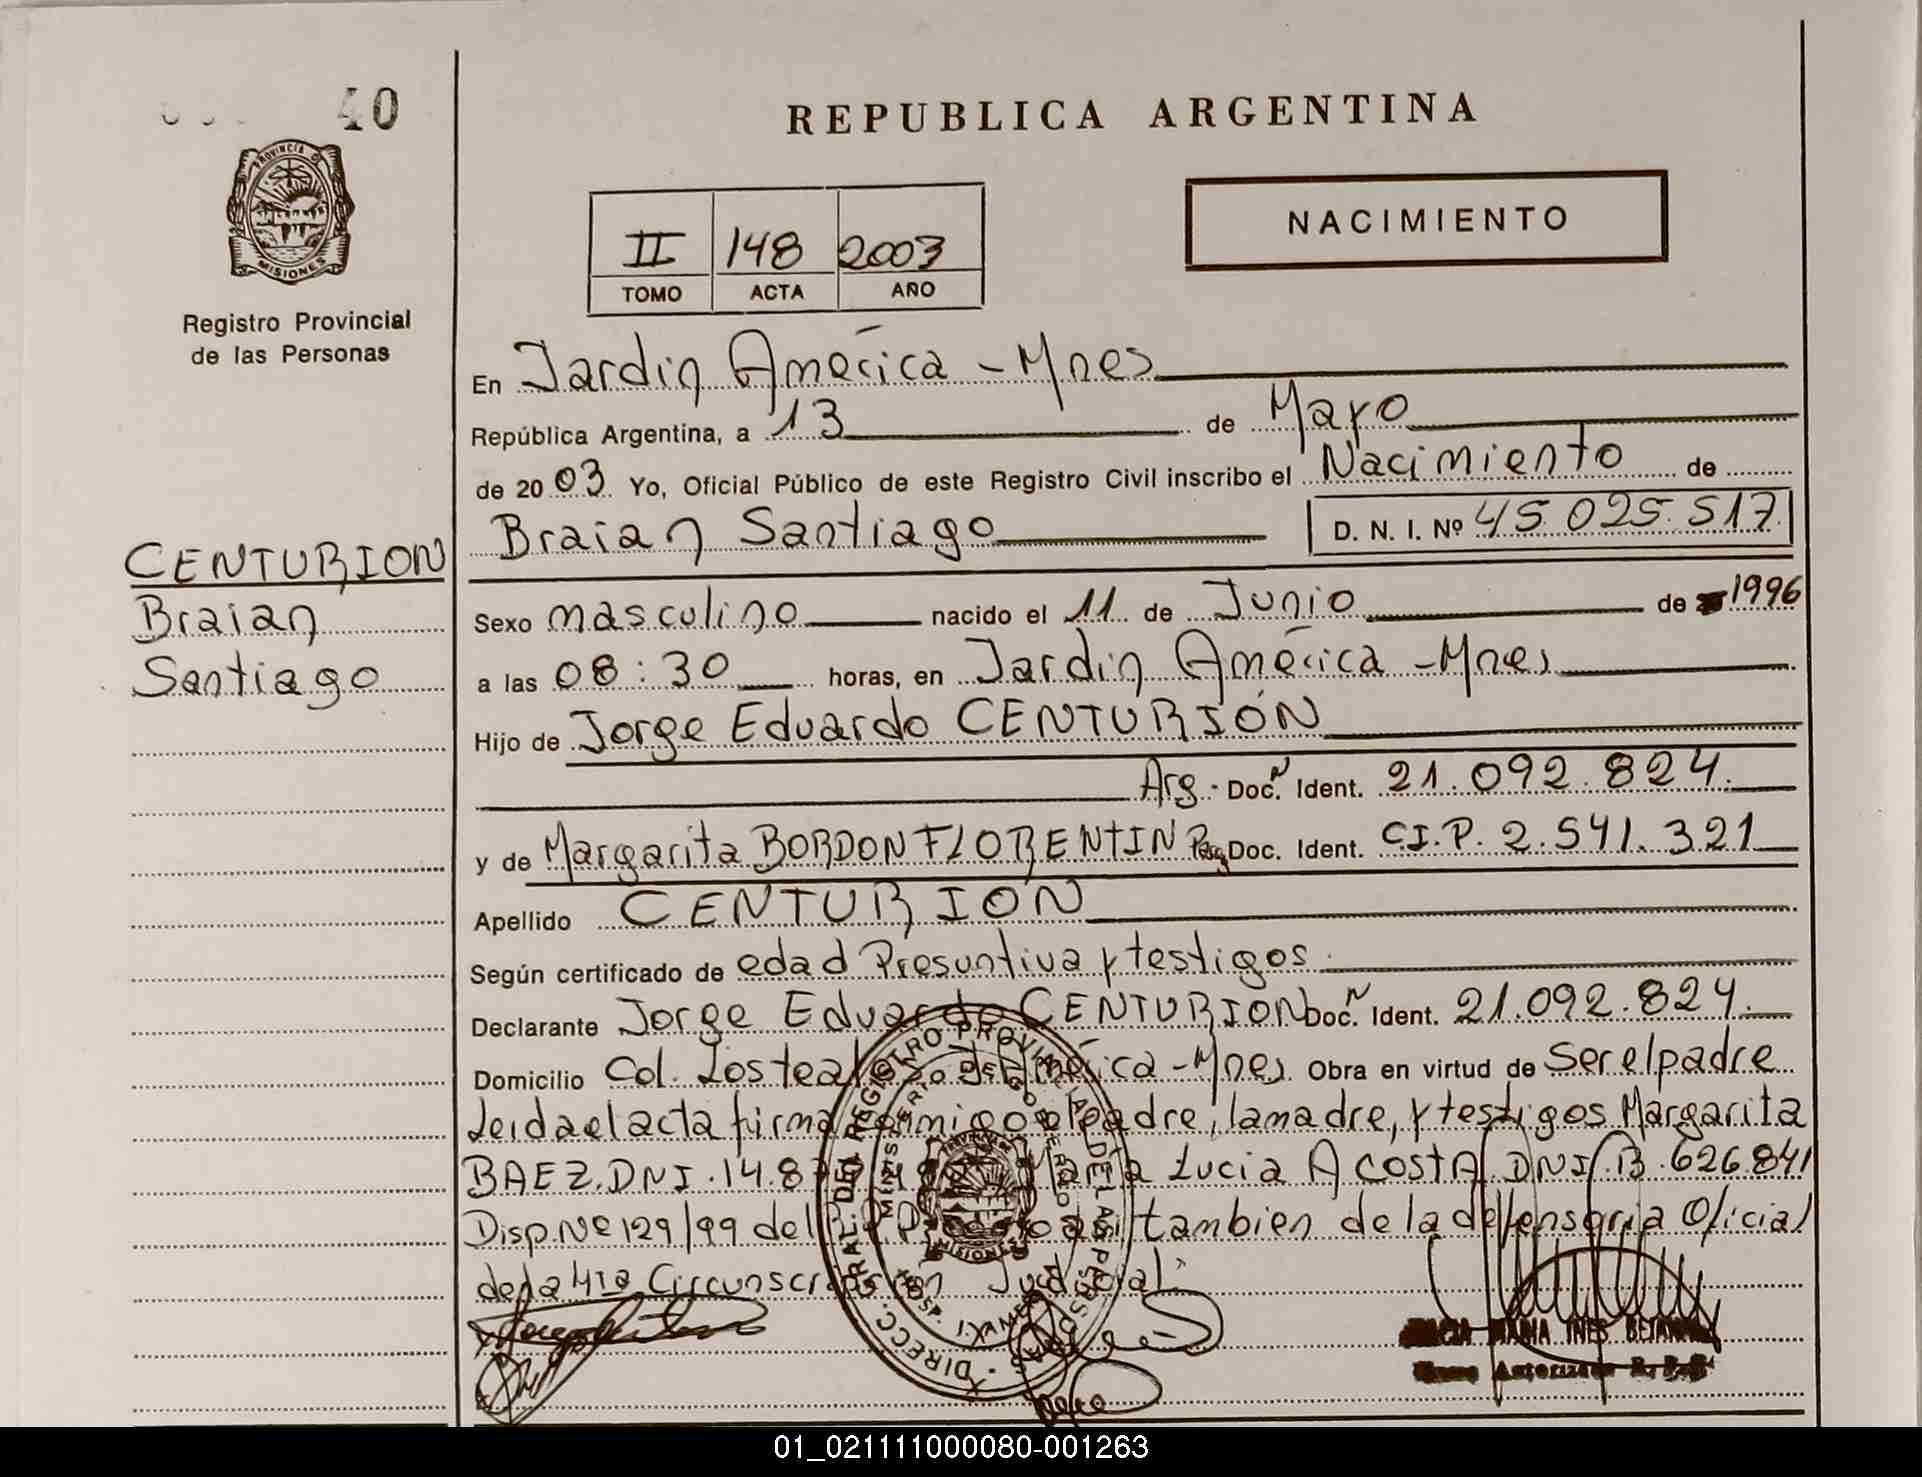 40
REPUBLICA ARGENTINA
PROVINCIA DE
MISIONES
Registro Provincial
de las Personas
NACIMIENTO
II 148 2003
TOMO ACTA AÑO
En Jardin América - Mnes
República Argentina, a 13 de Mayo
de 2003 Yo, Oficial Público de este Registro Civil inscribo el Nacimiento de
Braian Santiago D. N. I. Nº 45.025.517
CENTURION
Braian
Santiago
Sexo masculino nacido el 11 de Junio de 1996
a las 08:30 horas, en Jardin América - Mnes
Hijo de Jorge Eduardo CENTURIÓN
Arg. Doc. Ident. 21.092.824.
y de Margarita BORDON FLORENTIN Pag Doc. Ident. C.I.P. 2.541.321
Apellido CENTURIÓN
Según certificado de edad Presuntiva y testigos.
Declarante Jorge Eduardo CENTURION Doc. Ident. 21.092.824.
Domicilio Col. Los América - Mnes Obra en virtud de Ser el padre
Leida el acta firma conmigo el padre, la madre, y testigos Margarita
BAEZ. DNI. 14.8 Lucia ACOSTA DNI. 13.626.841
Disp. Nº 129/99 del tambien de la defensoria Oficial
de la 4ta Circunscripción Judicial
MARIA INES
Autorizado
01_021111000080-001263